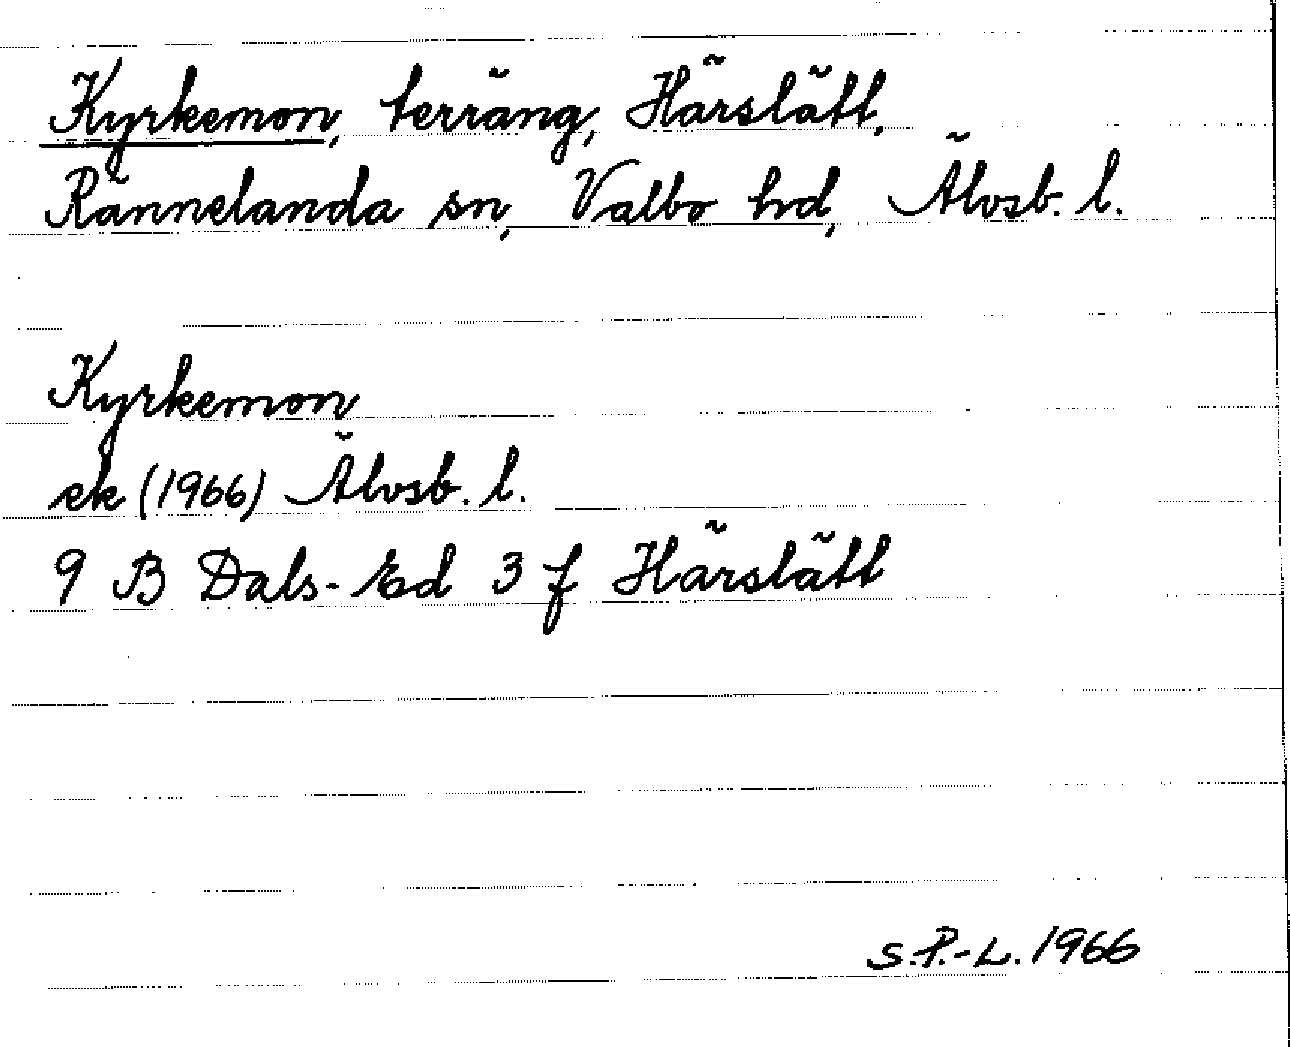 Kyrkemon, terräng, Härslätt,
Rännelanda sn, Valbo hd, Älvsb. l.
Kyrkemon
ek (1966) Älvsb. l.
9 B Dals-Ed 3 f Härslätt
S.P.-L. 1966